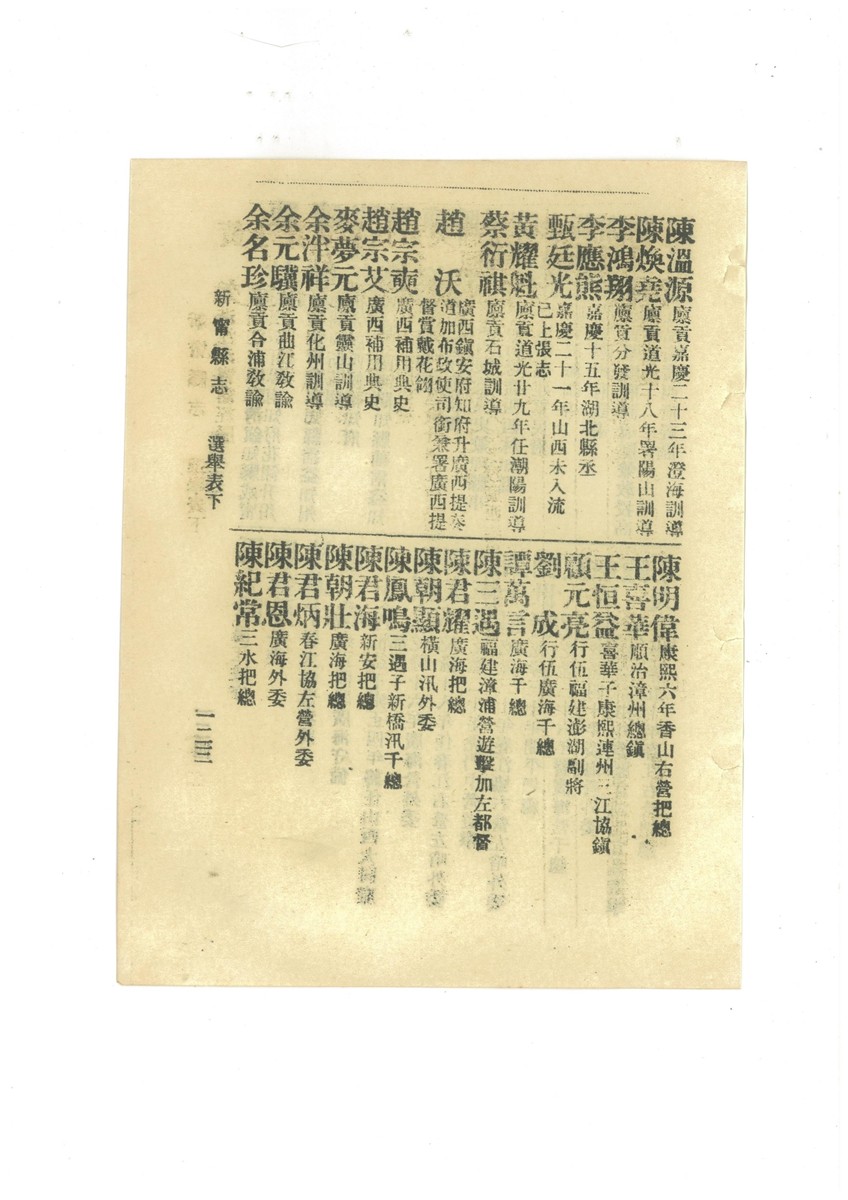 陳溫源 廩貢嘉慶二十三年澄海訓導
陳煥堯 廩貢道光十八年署陽山訓導
李鴻翔 廩貢分發訓導
李應熊 嘉慶十五年湖北縣丞
甄廷光 嘉慶二十一年山西未入流
已上張志
黃耀魁 廩貢道光廿九年任潮陽訓導
蔡衍祺 廩貢石城訓導
趙沃 廣西鎭安府知府升廣西提
道加布政使司銜兼署廣西提
督賞戴花翎
趙宗奭 廣西補用典史
趙宗艾 廣西補用典史
麥夢元 廩貢靈山訓導
余泮祥 廩貢化州訓導
余元驥 廩貢曲江敎諭
余名珍 廩貢合浦敎諭
陳明偉 康熙六年香山右營把總
王喜華 順治漳州總鎭
王恒益 喜華子康熙連州三江協鎭
顧元亮 行伍福建澎湖副將
劉成 行伍廣海千總
譚萬言 廣海千總
陳三遇 福建漳浦營遊擊加左都督
陳君耀 廣海把總
陳朝顯 橫山汛外委
陳鳳鳴 三遇子新橋汛千總
陳君海 新安把總
陳朝壯 廣海把總
陳君炳 春江協左營外委
陳君恩 廣海外委
陳紀常 三水把總
新甯縣志 選舉表下 一二三